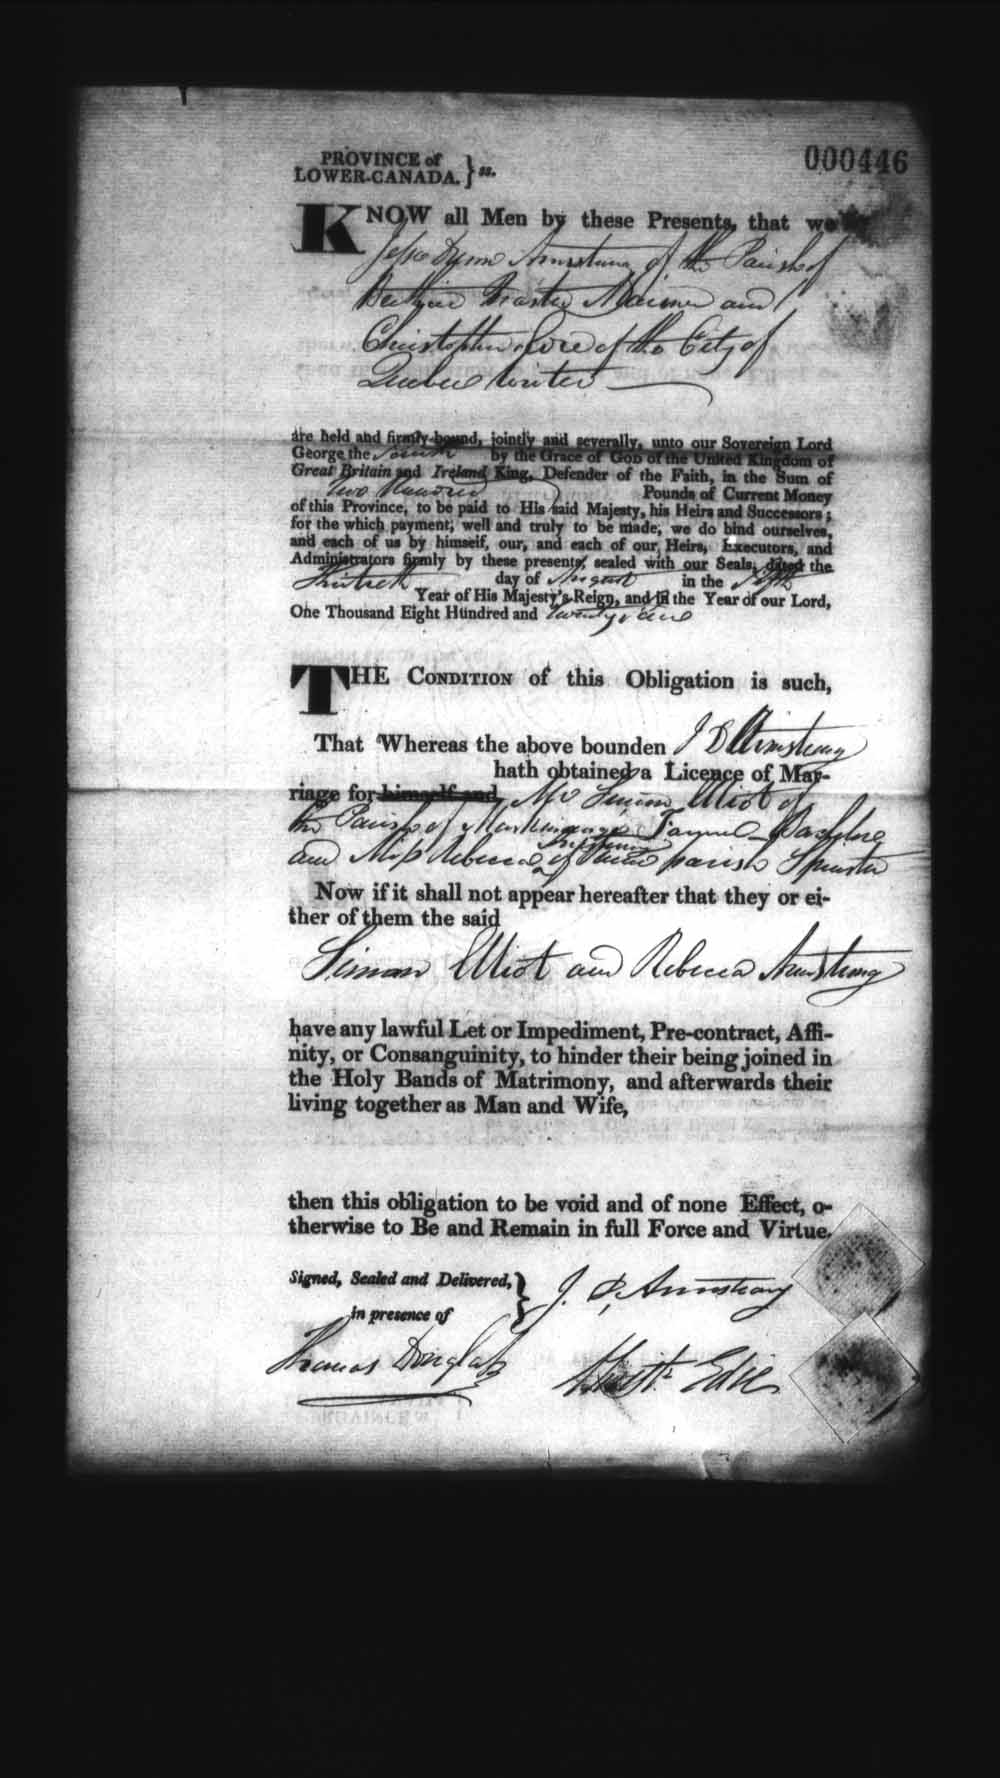 PROVINCE of
LOWER-CANADA. } ss.
000446
KNOW all Men by these Presents, that we
Jesse Dunn Armstrong of the Parish of
Berthier Master Mariner and
Christopher Edie of the City of
Quebec Writer
are held and firmly bound, jointly and severally, unto our Sovereign Lord
George the Fourth by the Grace of GOD of the United Kingdom of
Great Britain and Ireland King, Defender of the Faith, in the Sum of
Two Hundred Pounds of Current Money
of this Province, to be paid to His said Majesty, his Heirs and Successors;
for the which payment, well and truly to be made, we do bind ourselves,
and each of us by himself, our, and each of our Heirs, Executors, and
Administrators firmly by these presents, sealed with our Seals, dated the
day of August in the Fifth
Year of His Majesty's Reign, and in the Year of our Lord,
One Thousand Eight Hundred and twenty
THE CONDITION of this Obligation is such,
That Whereas the above bounden J D Armstrong
hath obtained a Licence of Mar-
riage for himself and Mr Simon Elliot of
the Parish of Maskinonge Farmer Bachelor
Armstrong
and Miss Rebecca of same parish Spinster
Now if it shall not appear hereafter that they or ei-
ther of them the said
Simon Elliot and Rebecca Armstrong
have any lawful Let or Impediment, Pre-contract, Affi-
nity, or Consanguinity, to hinder their being joined in
the Holy Bands of Matrimony, and afterwards their
living together as Man and Wife,
then this obligation to be void and of none Effect, o-
therwise to Be and Remain in full Force and Virtue.
Signed, Sealed and Delivered, }
in presence of
J. D. Armstrong
Thomas Douglass
Edie